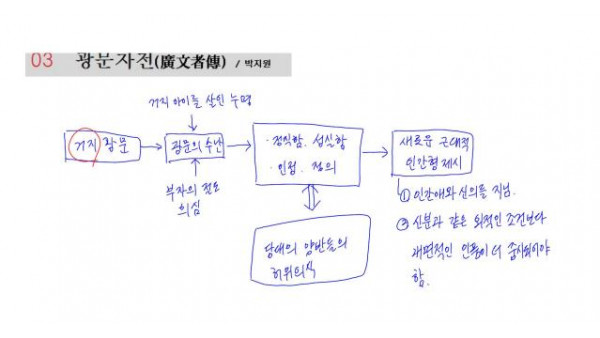 03 광문자전(廣文者傳) / 박지원
거지 아이를 살인 누명
거지 광문
광문의 수난
· 정직함. 성실함
· 인정. 정의
새로운 근대적
인간형 제시
부자의 절도
의심
① 인간애와 신의를 지님.
② 신분과 같은 외적인 조건보다
개인적인 인품이 더 중시되어야
함.
당대의 양반들의
허위의식